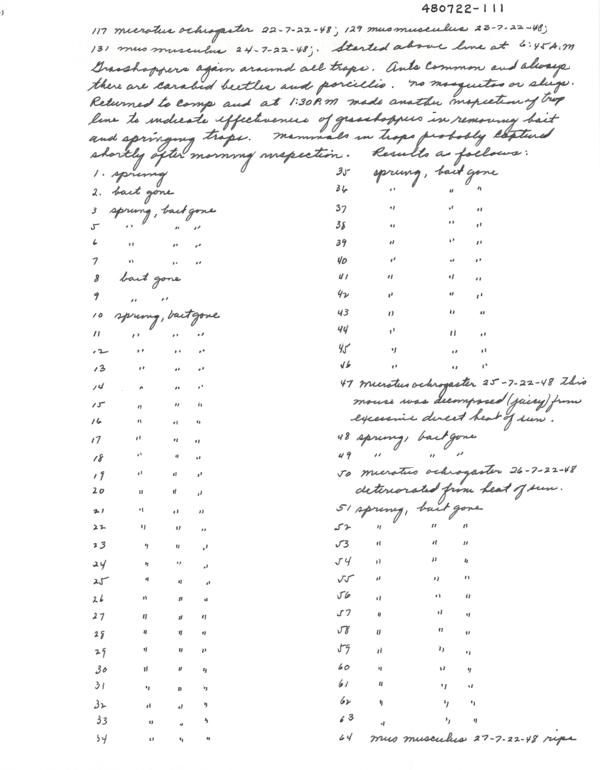 480722-111
117 microtus ochrogaster 22-7-22-48; 129 mus musculus 23-7-22-48;
131 mus musculus 24-7-22-48;. Started above line at 6:45 A.M
Grasshoppers again around all traps. Ants common and always
there are carabid beetles and porcillio. no mosquitos or slugs.
Returned to camp and at 1:30 P.M made another inspection of trap
line to indicate effectiveness of grasshoppers in removing bait
and springing traps. mammals in traps probably captured
shortly after morning inspection. Results as follows:
1. sprung
2. bait gone
3 sprung, bait gone
5 " " "
6 " " "
7 " " "
8 bait gone
9 " "
10 sprung, bait gone
11 " " "
12 " " "
13 " " "
14 " " "
15 " " "
16 " " "
17 " " "
18 " " "
19 " " "
20 " " "
21 " " "
22 " " "
23 " " "
24 " " "
25 " " "
26 " " "
27 " " "
28 " " "
29 " " "
30 " " "
31 " " "
32 " " "
33 " " "
34 " " "
35 sprung, bait gone
36 " " "
37 " " "
38 " " "
39 " " "
40 " " "
41 " " "
42 " " "
43 " " "
44 " " "
45 " " "
46 " " "
47 microtus ochrogaster 25-7-22-48 This
mouse was decomposed (juicy) from
excessive direct heat of sun.
48 sprung, bait gone
49 " " "
50 microtus ochrogaster 26-7-22-48
deteriorated from heat of sun.
51 sprung, bait gone
52 " " "
53 " " "
54 " " "
55 " " "
56 " " "
57 " " "
58 " " "
59 " " "
60 " " "
61 " " "
62 " " "
63 " " "
64 mus musculus 27-7-22-48 ripe